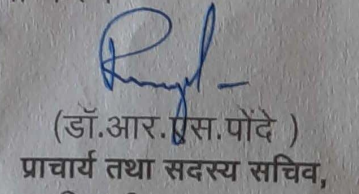 (डॉ.आर.एस.पोंदे )
प्राचार्य तथा सदस्य सचिव,